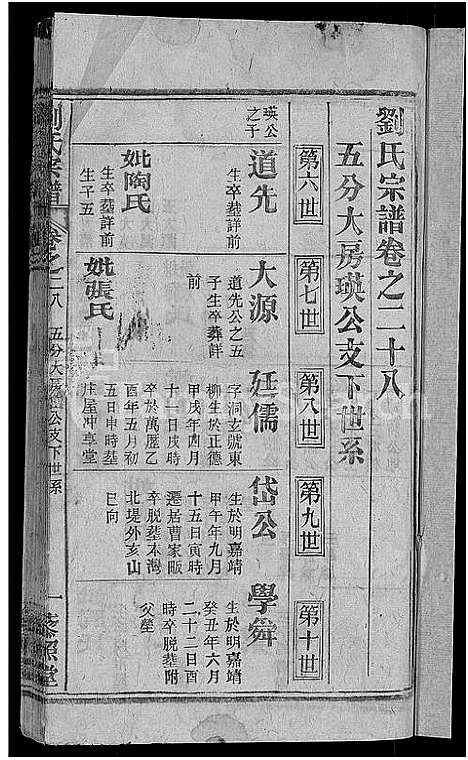 劉氏宗譜卷之二十八
五分大房瑛公支下世系
第六世
第七世
第八世
第九世
第十世
瑛公
之子
道先
生卒塟詳前
妣陶氏
生卒塟詳前
生子五
大源
道先公之五
子生卒塟詳
前
妣張氏
廷儒
字洞玄號東
柳生於正德
甲戌年四月
十一日戌時
卒於萬歷乙
酉年五月初
五日申時塟
庄屋冲享堂
岱公
生於明嘉靖
甲午年九月
十五日寅時
遷居曹家畈
卒脱塟本灣
北堤外亥山
巳向
學舜
生於明嘉靖
癸丑年六月
二十二日酉
時卒脱塟附
父塋
劉氏宗譜
卷之二八
五分大房瑛公支下世系
一